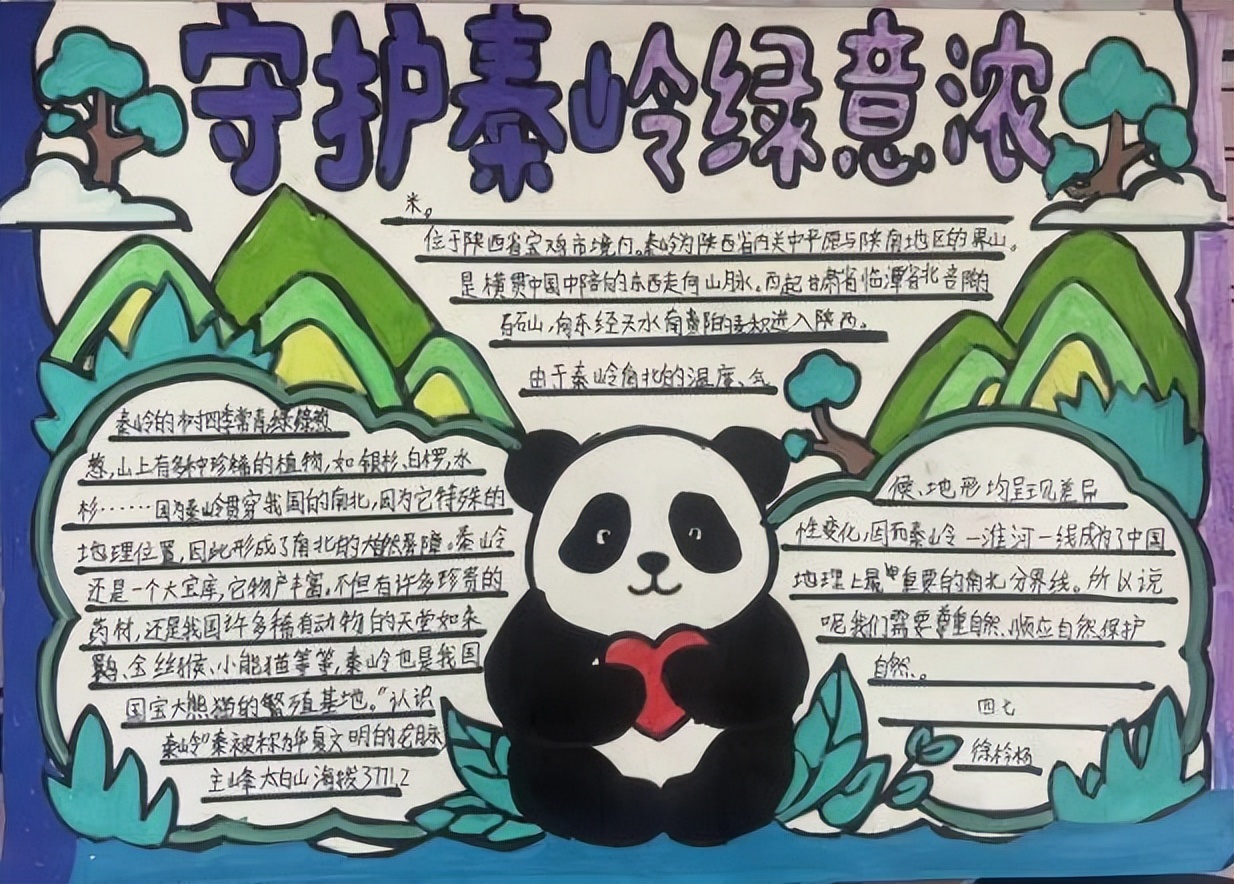 守护秦岭绿意浓
秦岭的树四季常青绿
葱,山上有多种珍稀的植物,如银杉、白椤,水
杉……因为秦岭贯穿我国的南北,因为它特殊的
地理位置,因此形成了南北的大自然屏障。秦岭
还是一个大宝库,它物产丰富。不但有许多珍贵的
药材,还是我国许多稀有动物的天堂如朱
鹮、金丝猴、小熊猫等等,秦岭也是我国
国宝大熊猫的繁殖基地。"认识
秦岭"秦被称华夏文明的龙脉
主峰太白山海拔3771.2
米。
位于陕西省宝鸡市境内。秦岭为陕西省内关中平原与陕南地区的界山。
是横贯中国中部的东西走向山脉。西起甘肃省临潭省北
石山,向东经天水南的麦积进入陕西。
由于秦岭南北的温度、气
候、地形均呈现差异
性变化,因而秦岭一淮河一线成为了中国
地理上最重要的南北分界线。所以说
呢我们需要尊重自然、顺应自然、保护
自然。
四七